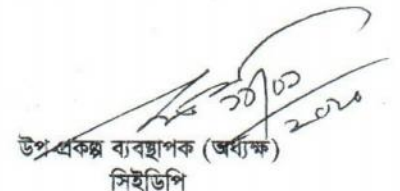 ২০২০
উপ প্রকল্প ব্যবস্থাপক (অধ্যক্ষ)
সিইডিপি